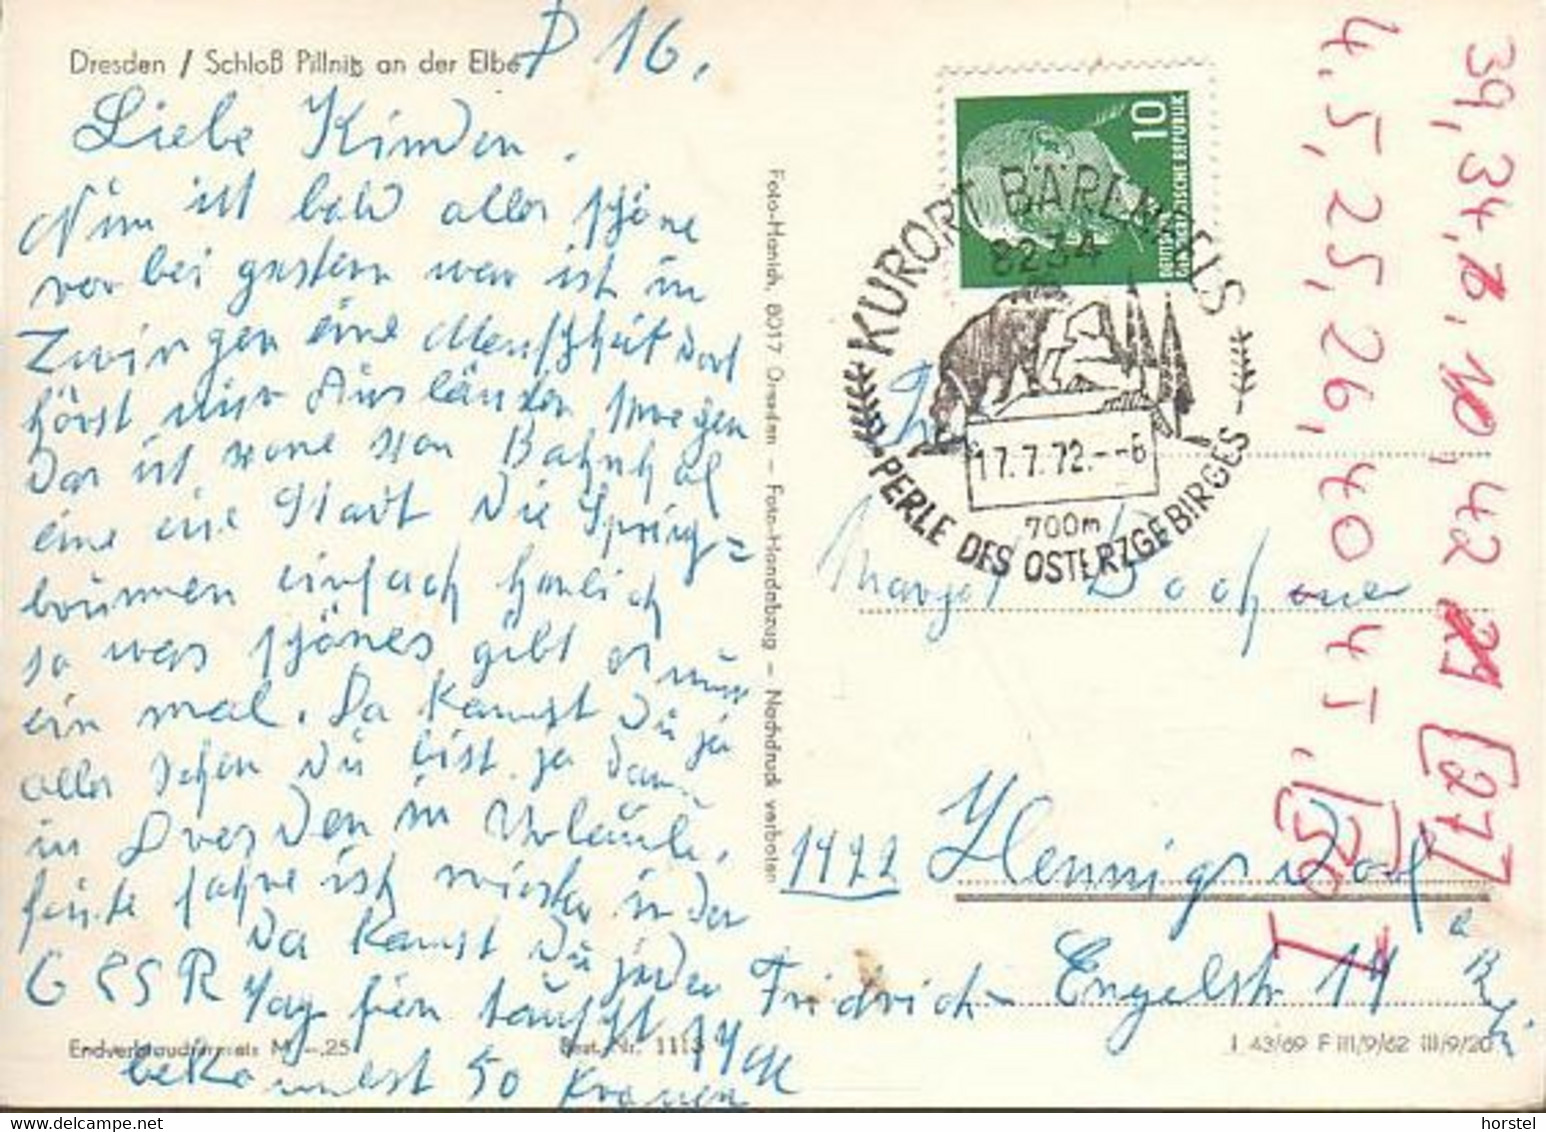 Dresden / Schloß Pillnitz an der Elbe
P 16.
Liebe Kinder.
Nun ist bald alles schöne
vor bei gestern war ist in
Zwinger eine Menschheit dort
hörst nur Ausländer
Das ist von Bahnhof
eine Stadt die Spring=
brünnen einfach herlich
so was schönes gibt es nur
ein mal. Da kannst Du ja
alles sehen Du bist ja dann
in Dresden in Urlaub.
heute Jahre ist wieder in der
CSSR
Da kannst Du jeden
Tag hier tauscht
bekommst 50 Kronen
Endverbraucherpreis M -,25
Best. Nr. 1113
Foto-Hanich, 8017 Dresden – Foto-Handabzug – Nachdruck verboten
10
DEUTSCHE DEMOKRATISCHE REPUBLIK
KURORT BÄRENFELS
8234
17.7.72.--6
700m
PERLE DES OSTERZGEBIRGES
Margot
1422 Hennigsdorf
Friedrich-Engelstr 14
I 43/69 F III/9/62 III/9/20
39, 34, 42 [27]
4, 5, 25, 26, 40, 45,
I
horstel